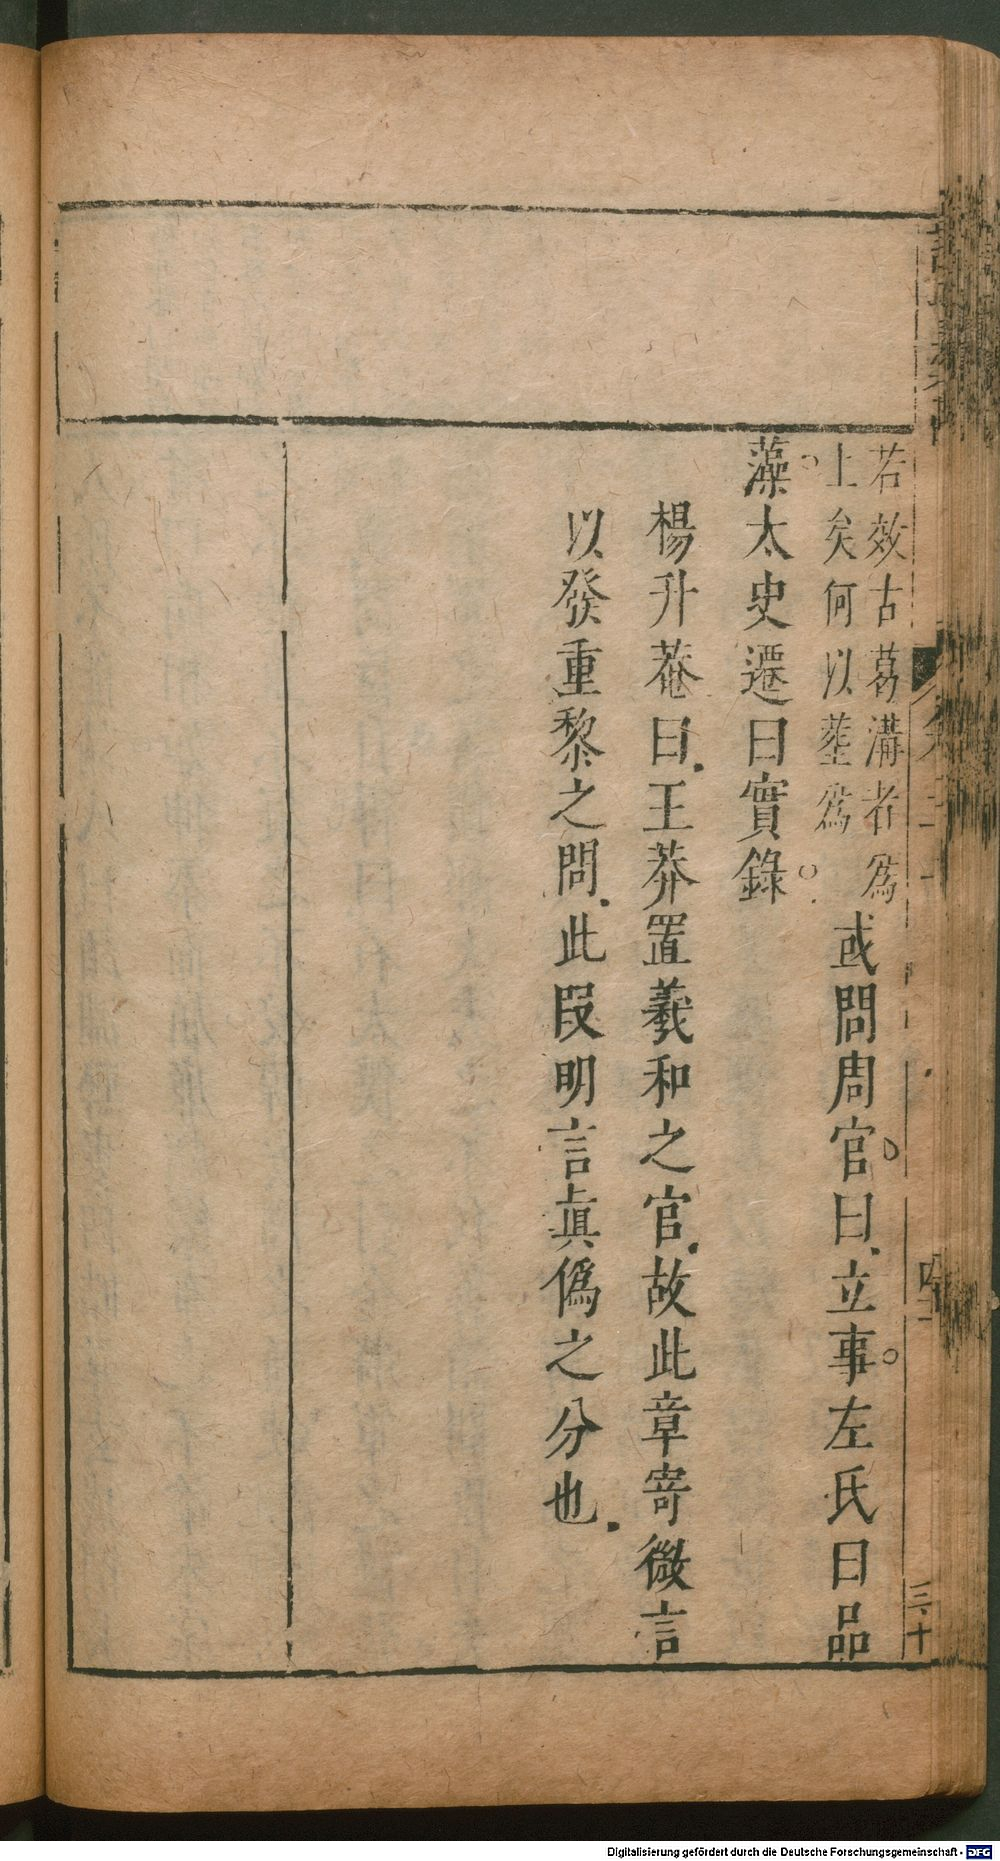 若效古葛溝者爲
上矣何以塟爲
或問周官曰立事左氏曰品
藻太史遷曰實錄
楊升菴曰王莽置羲和之官故此章寄微言
以發重黎之問此段明言眞僞之分也
三十
Digitalisierung gefördert durch die Deutsche Forschungsgemeinschaft - DFG